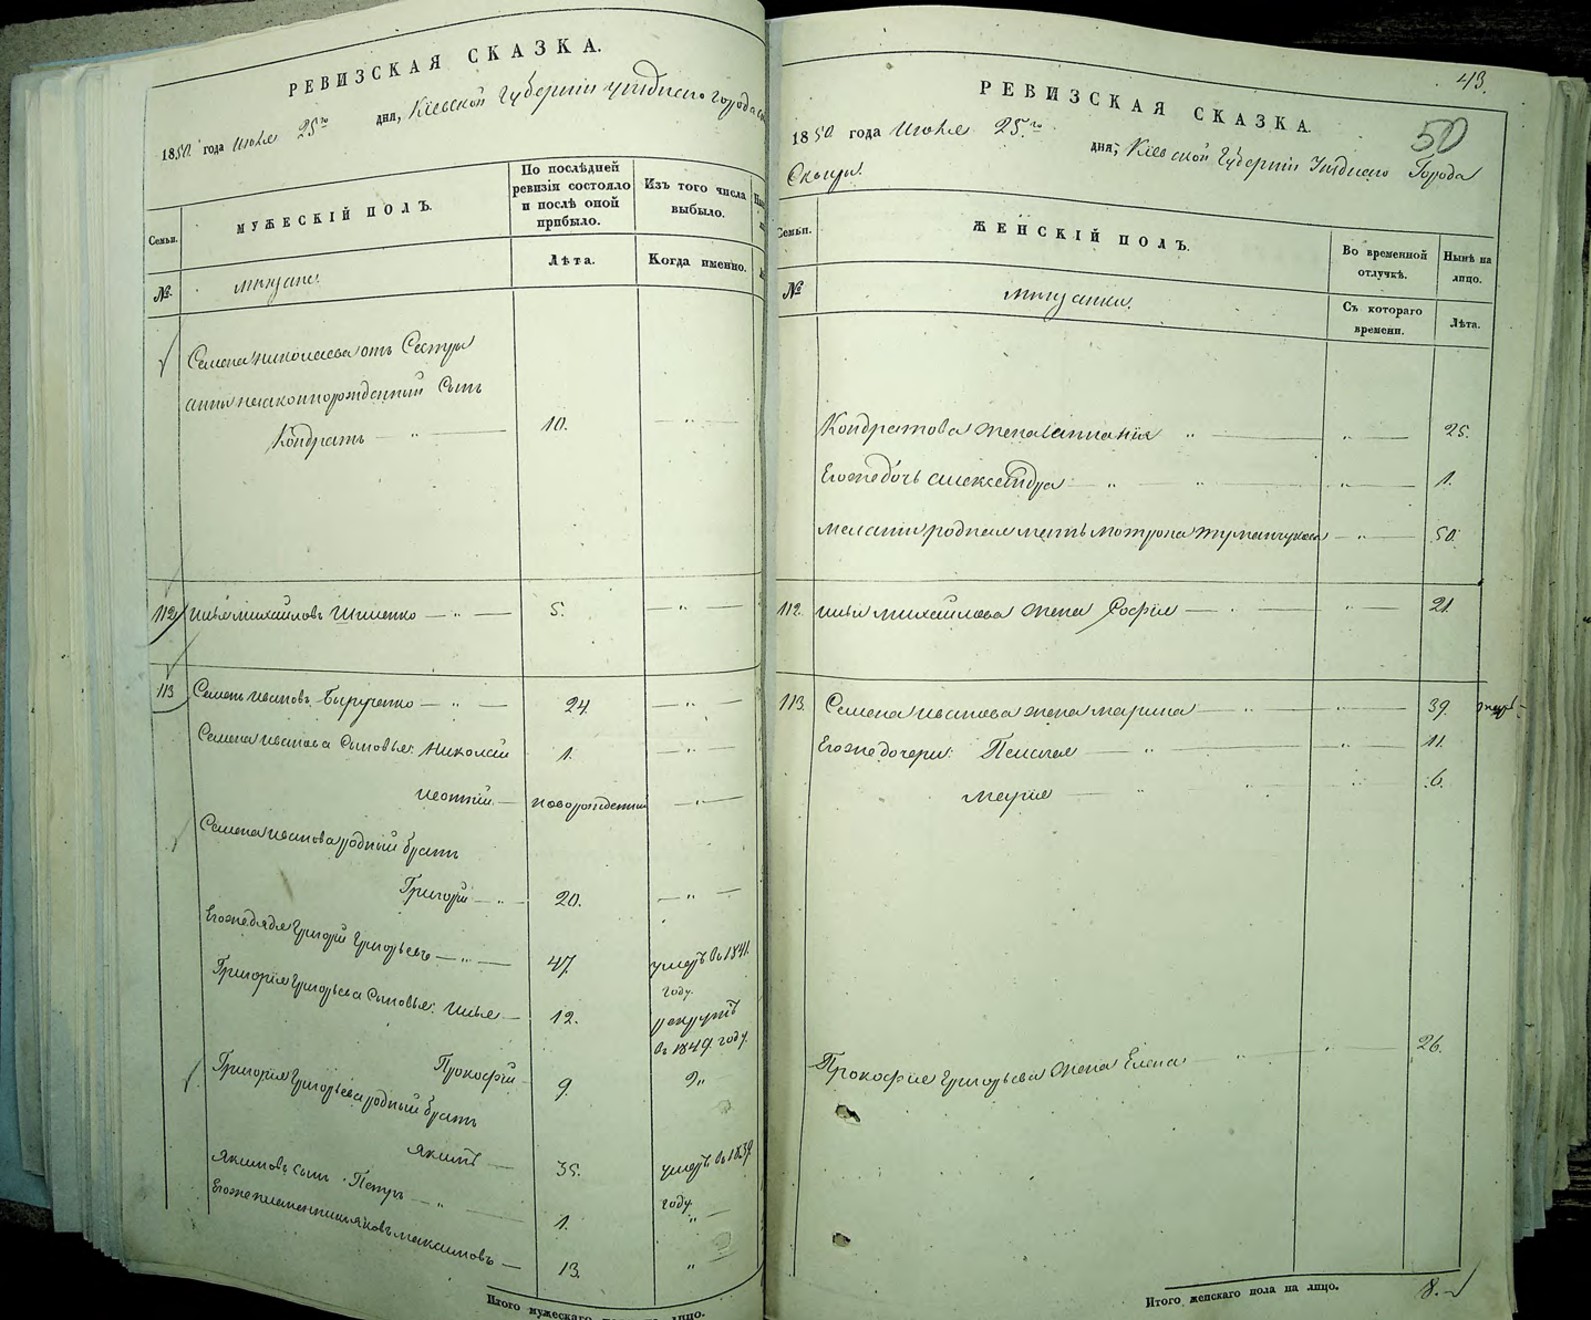 РЕВИЗСКАЯ СКАЗКА.
1850 года Июля 25го дня, Кіевской Губерніи уѣзднаго города
Семьи. МУЖЕСКІЙ ПОЛЪ. По послѣдней ревизіи состояло и послѣ оной прибыло. Изъ того числа выбыло.
№. мещане. Лѣта. Когда именно.
Семена Николаева отъ Сестры
анны незаконнорожденный Сынъ
Кондратъ — " — 10. — " —
112 Илья михайловъ Шиленко — " — 5. — " —
113 Семенъ Ивановъ Бырученко — " — 24. — " —
Семена Иванова Сыновья: Николай 1. — " —
новорожденный — " —
Семена Иванова родный братъ
Григорій — " — 20. — " —
Его же дядя Григорій Григорьевъ — " — 47. умеръ въ 1841.
году.
Григорія Григорьева Сыновья: Илья — 12. рекрутъ
въ 1849. году.
Прокофій 9. "
Григорія Григорьева родный братъ
Якимъ — 35. умеръ въ 1839.
году.
Якимовъ сынъ Петръ — " — 1. " —
Его же племянникъ Яковъ максимовъ — 13. "
Итого мужескаго пола на лицо.
43.
РЕВИЗСКАЯ СКАЗКА.
50
1850 года Июля 25.го дня, Кіевской Губерніи Уѣзднаго Города
Сквиры.
Семьи. ЖЕНСКІЙ ПОЛЪ. Во временной отлучкѣ. Нынѣ на лицо.
№ мещанки. Съ котораго времени. Лѣта.
Кондратова жена " — " — 25.
Его же дочь александра — " — " — 1.
родная мать мотрона — " — 50.
112. Ильи михайлова жена Софія — " — " — 21.
113. Семена Иванова жена марина — " — " — 39.
Его же дочери: Пелагея — " — " — 11.
марія — " — 6.
Прокофія Григорьева жена Елена — " — " — 26.
Итого женскаго пола на лицо. 8.